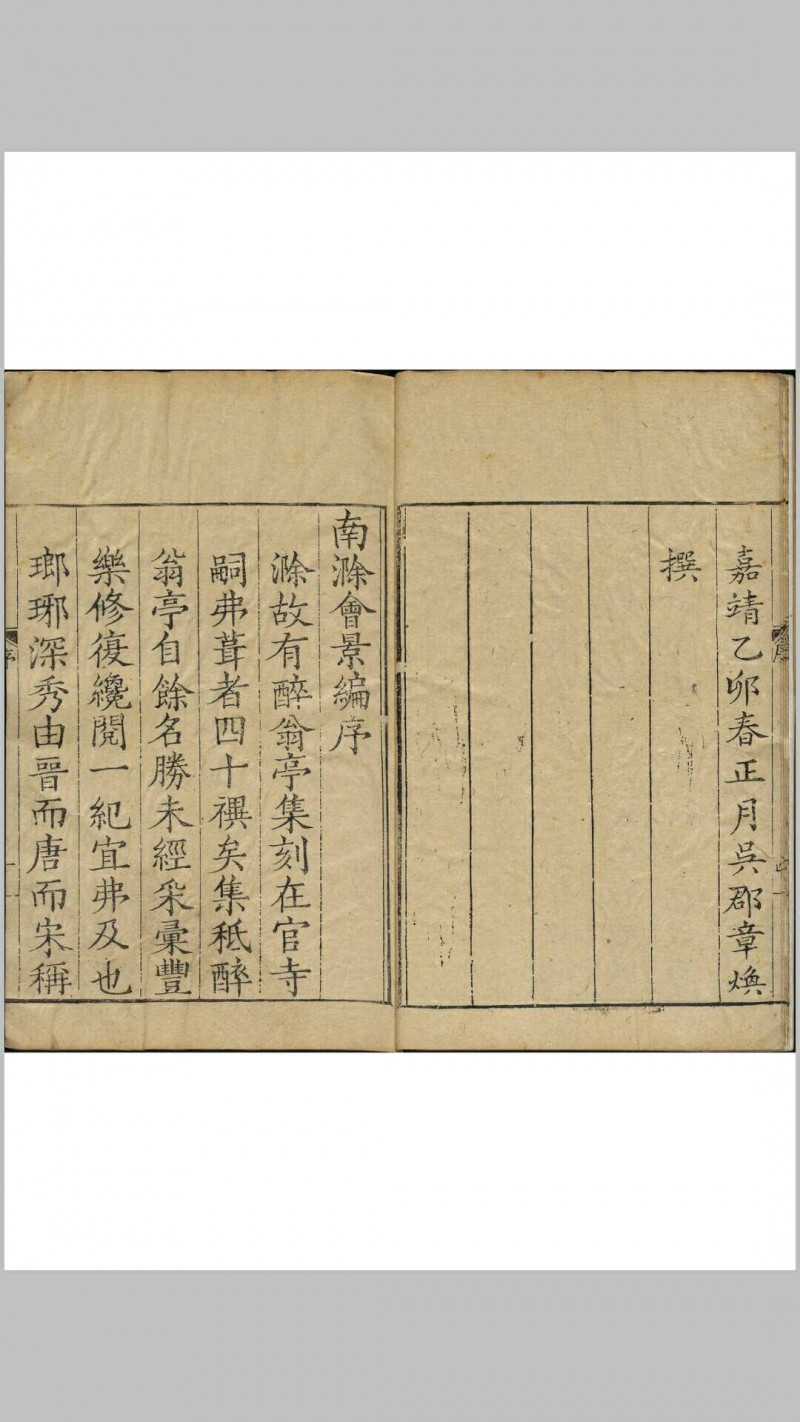 嘉靖乙卯春正月吳郡章煥
撰
南滁會景編序
滁故有醉翁亭集刻在官寺
嗣弗葺者四十禩矣集秪醉
翁亭自餘名勝未經采彙豐
樂修復纔閱一紀宜弗及也
瑯琊深秀由晉而唐而宋稱